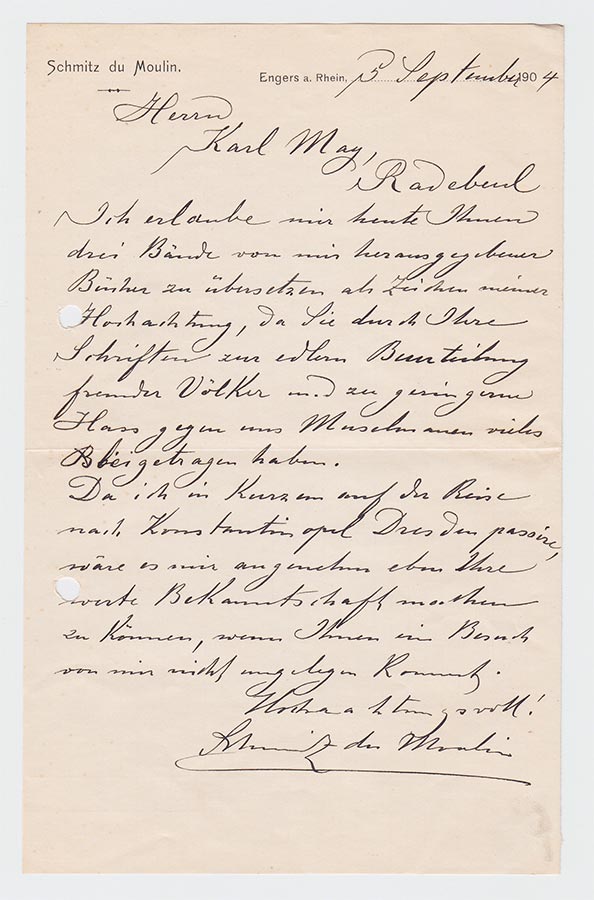 Schmitz du Moulin.
Engers a. Rhein, 5 September 1904
Herrn
Karl May,
Radebeul
Ich erlaube mir heute Ihnen
drei Bände von mir herausgegebener
Bücher zu übersetzen als Zeichen meiner
Hochachtung, da Sie durch Ihre
Schriften zur edlern Beurteilung
fremder Völker und zu geringerm
Hass gegen uns Muselmanen vieles
beigetragen haben.
Da ich in Kurzem auf der Reise
nach Konstantinopel Dresden passire,
wäre es mir angenehm eben Ihre
werte Bekanntschaft machen
zu können, wenn Ihnen ein Besuch
von mir nicht ungelegen kommt.
Hochachtungsvoll!
Schmitz du Moulin